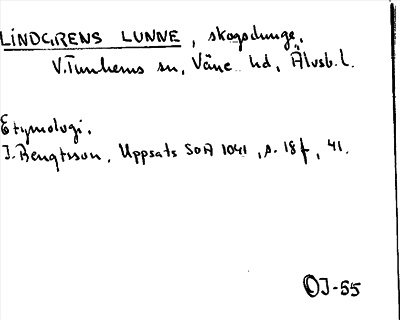 LINDGRENS LUNNE, skogsdunge.
V. Tunhems sn, Väne hd, Älvsb. l.
Etymologi.
J. Bengtsson, Uppsats SOÄ 1041, s. 18 f, 41.
OJ-55